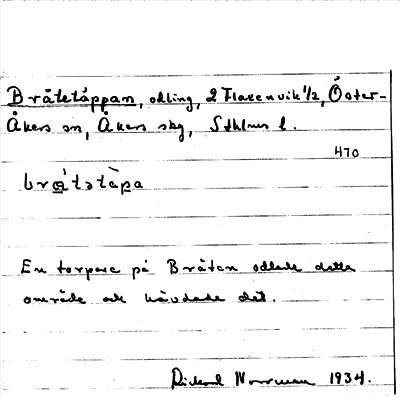 Bråtetäppan, odling, 2 Flaxenvik 1/2, Öster-
Åkers sn, Åkers skg, Sthlms l.
470
brå̀tetàpa
En torpare på Bråten odlade detta
område och hävdade det.
Rickard Norrman 1934.